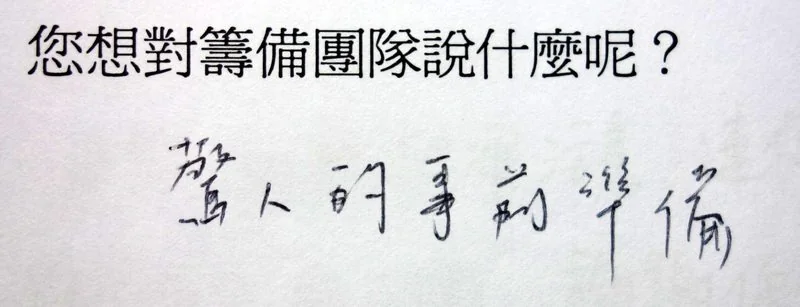 您想對籌備團隊說什麼呢？
驚人的事前準備